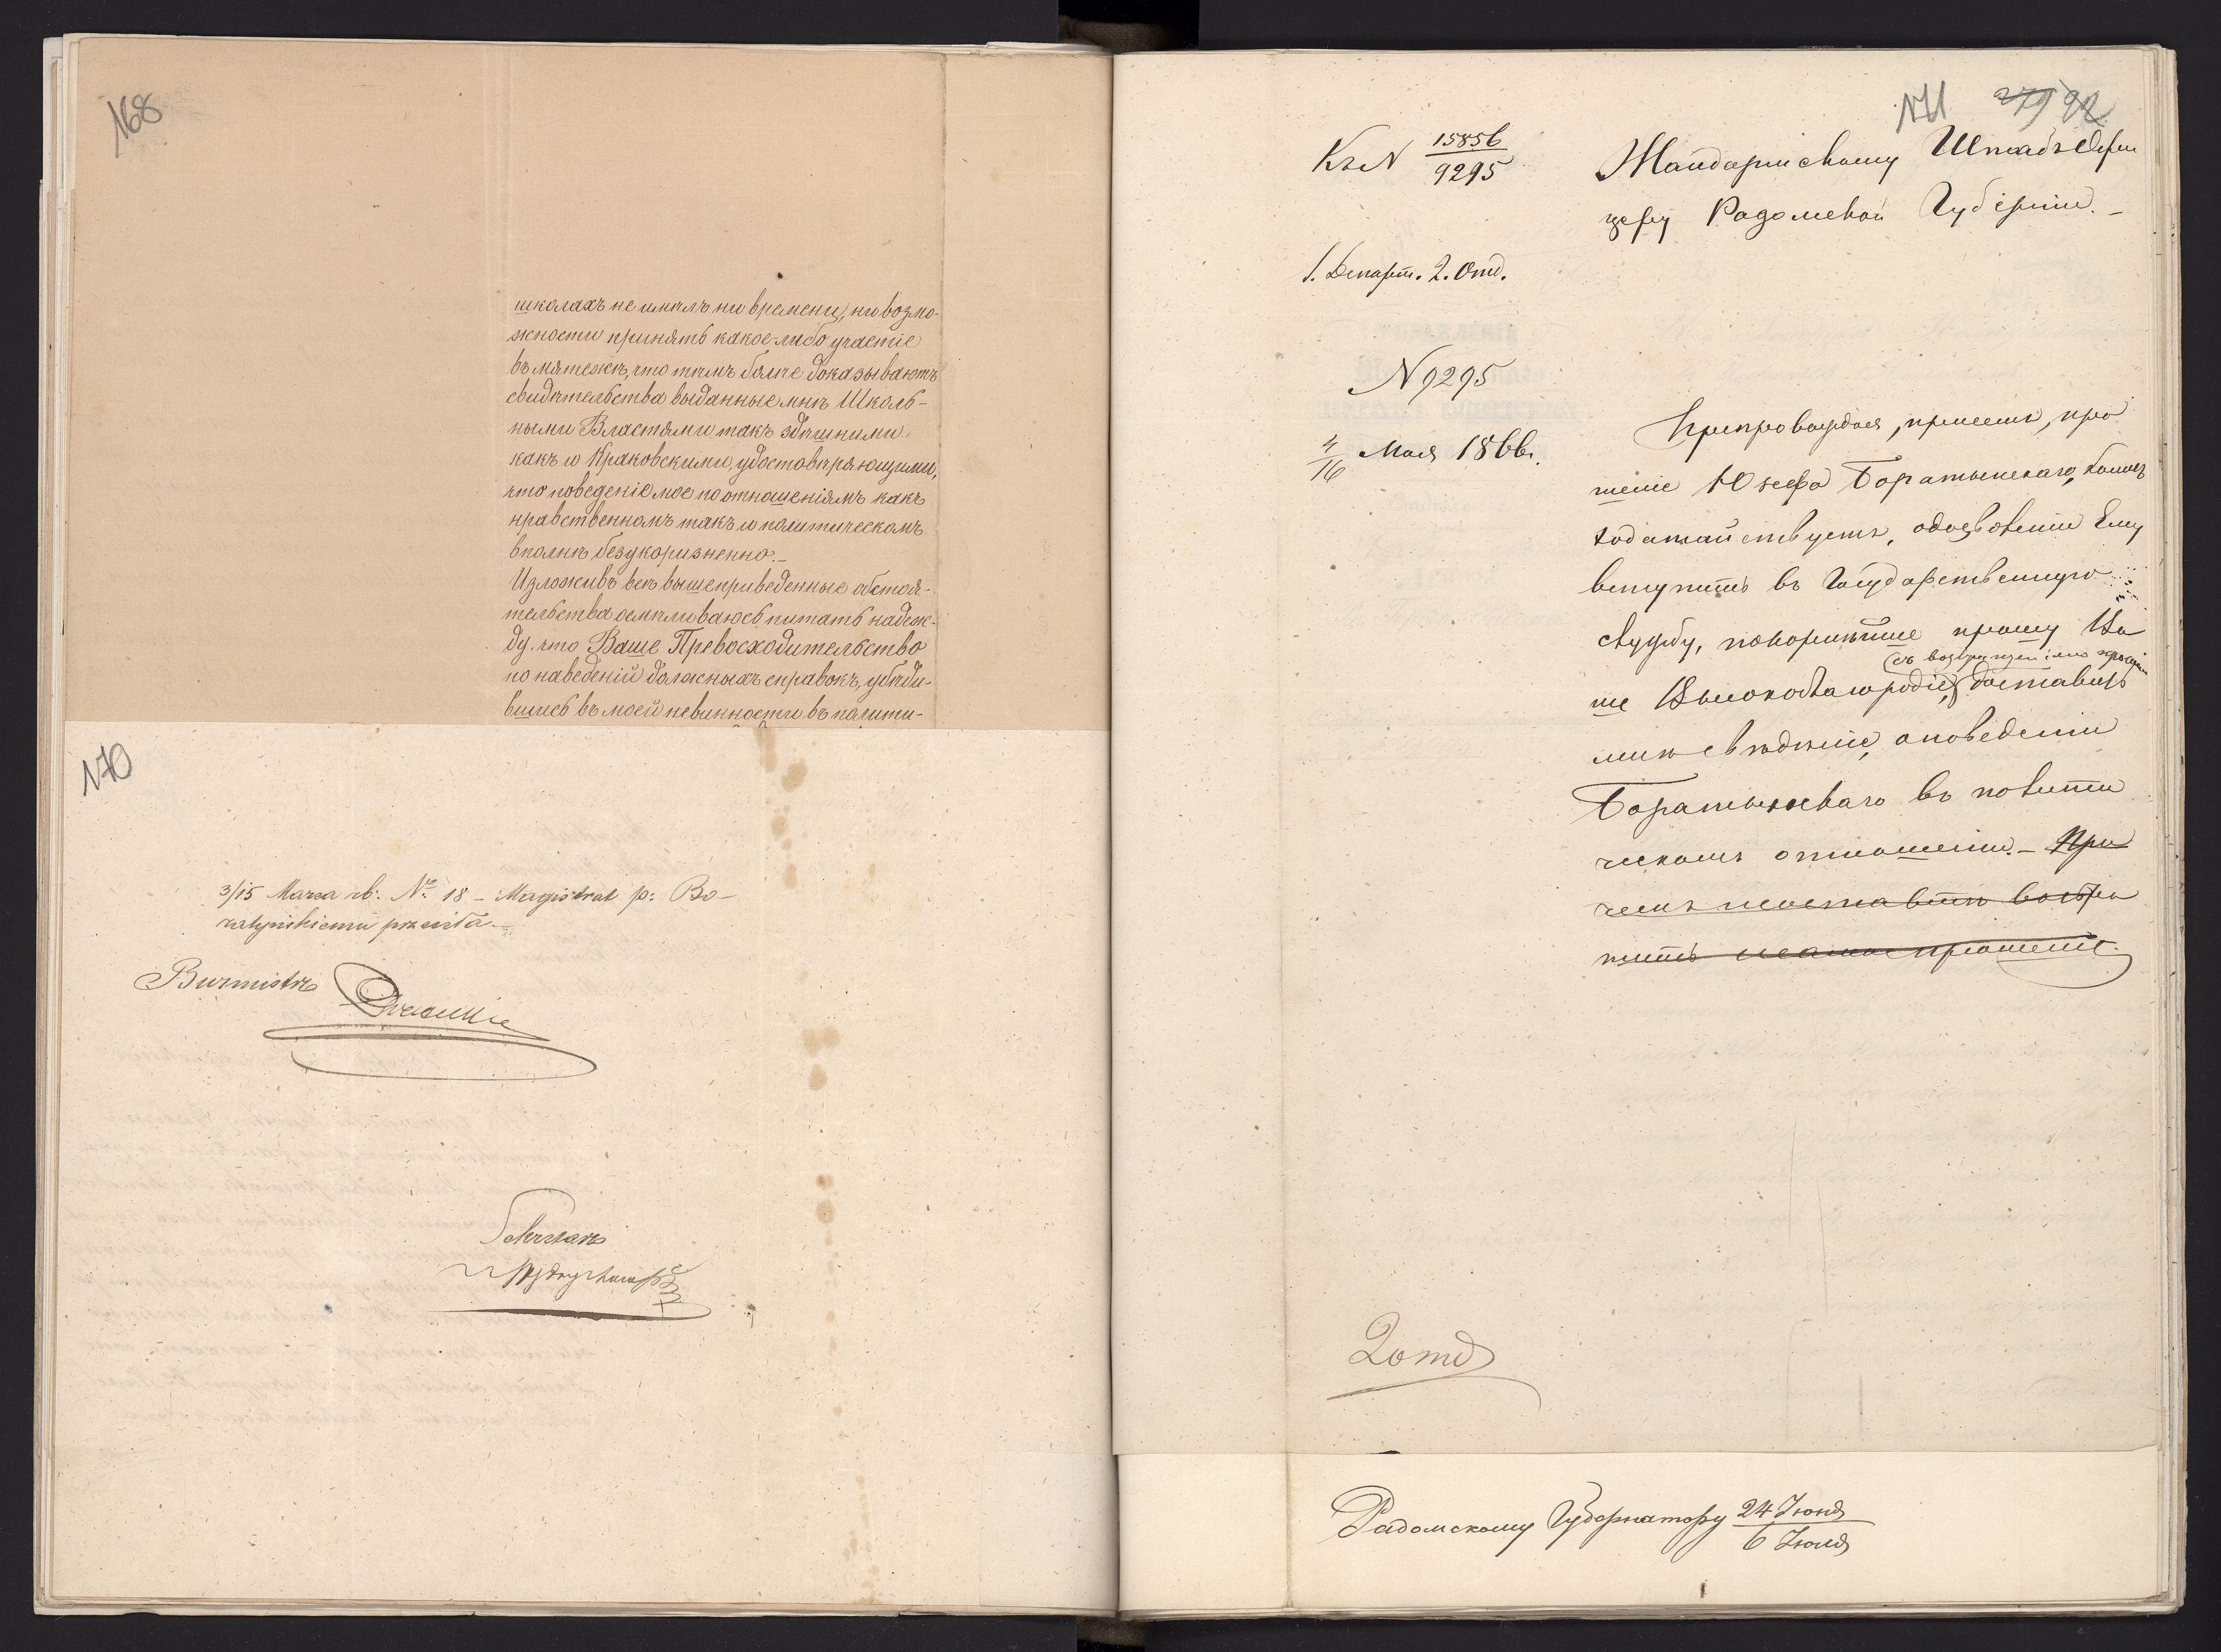 168
школахъ не имѣлъ ни времени, ни возмо-
жности принять какое-либо участіе
въ мятежѣ, что тѣмъ болѣе доказываютъ
свидѣтельства выданные мнѣ Школь-
ными Властями такъ здѣшними,
какъ и Краковскими, удостовѣряющими,
что поведеніе мое по отношеніямъ какъ
нравственномъ такъ и политическомъ
вполнѣ безукоризненно.-
Изложивъ всѣ вышеприведенные обстоя-
тельства осмѣливаюсь питать надеж-
ду, что Ваше Превосходительство
по наведеній должныхъ справокъ, убѣди-
вшись въ моей невинности въ полити-
170
3/15 Marca rb: No 18 - Magistrat p: Bo-
ratyńskiemu przesyła
Burmistrz
Sekretarz
171 279 92
Къ N 15856/9295
Жандармскому Штабъ Офи
церу Радомской Губерніи. -
1. Департ. 2. Отд.
N 9295
4/16 Мая 1866 г.
Препровождая, при семъ, про
шеніе Юзефа Боратынскаго, коимъ
ходатайствуетъ, о дозволеніи Ему
вступить въ Государственную
службу, покорнѣйше прошу Ва
съ возвращеніемъ
ше Высокоблагородіе, доставить
мнѣ свѣдѣніе, о поведеніи
Боратынскаго въ полити
ческомъ отношеніи. - При
чемъ
прошеніе.
2 отд
Радомскому Губернатору 24 Іюня/6 Іюля